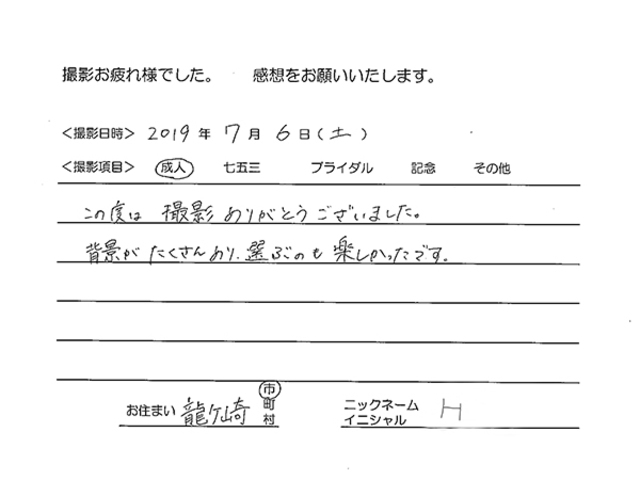 撮影お疲れ様でした。 感想をお願いいたします。
<撮影日時> 2019年 7月 6日(土)
<撮影項目> 成人 七五三 ブライダル 記念 その他
この度は 撮影ありがとうございました。
背景がたくさんあり、選ぶのも楽しかったです。
お住まい 龍ケ崎 市町村 ニックネーム イニシャル H